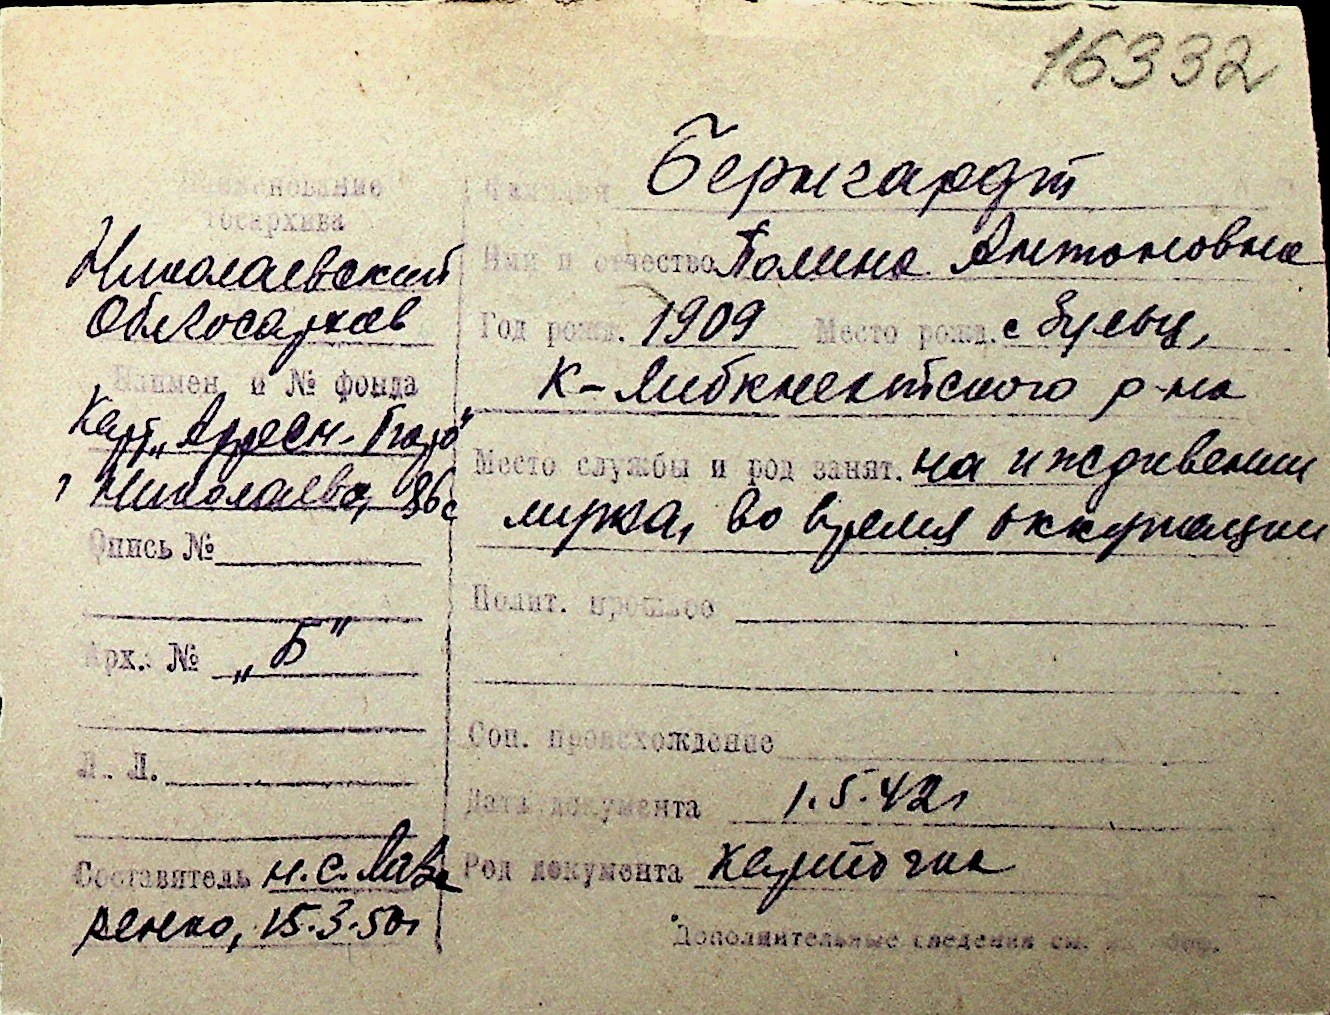 16332
Наименование
госархива
Николаевский
Облгосархив
Наимен. и № фонда
Карт. „Адресн. Бюро"
г Николаева, 86 с
Опись №
Арх. № „Б"
Л. Л.
Составитель Н.С. Лав
ренко, 15.3.50г
Фамилия Бернгардт
Имя и отчество Полина Антоновна
Год рожд. 1909 Место рожд. с Зульц,
К-Либкнехтского р-на
Место службы и род занят. на иждивении
мужа, во время оккупации
Полит. прошлое
Соц. происхождение
Дата документа 1.5.42г
Род документа карточка
Дополнительные сведения см. на обор.